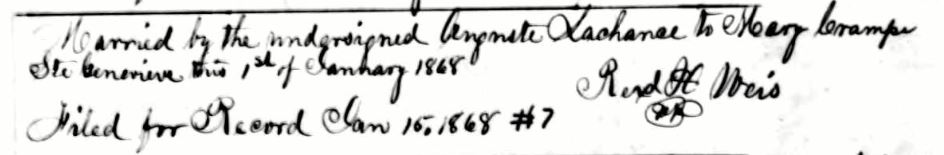 Married by the undersigned Auguste Lachance to Mary Crampe
Ste Genevieve this 1st of January 1868
Revd H Weis
Filed for Record Jan 15, 1868 #7